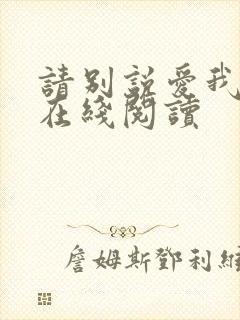 請別說愛我
在綫閱讀
詹姆斯鄧利維